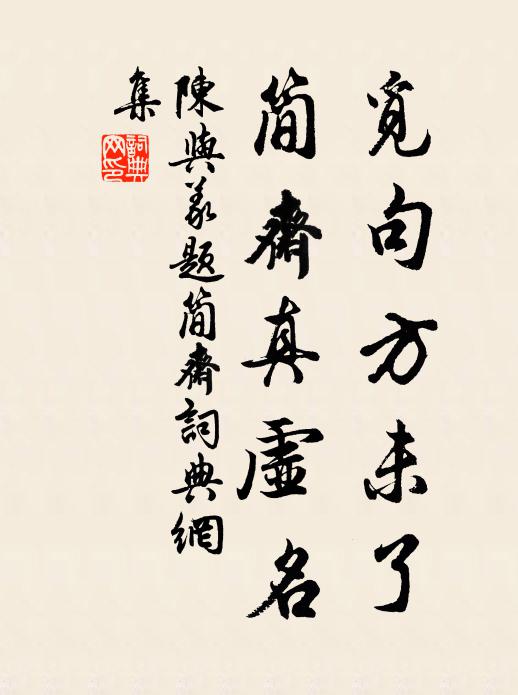 覓句方未了
簡齋真虛名
陳與義題簡齋詞典網
集
詞典
网印